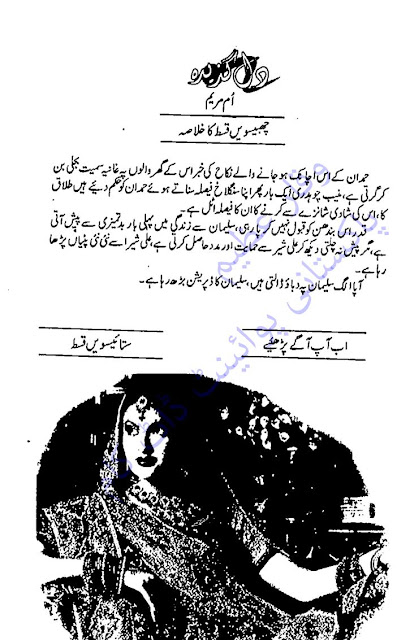 دل گزیدہ
اُم مریم
چھبیسویں قسط کا خلاصہ
حمدان کے اس اچانک ہو جانے والے نکاح کی خبر اس کے گھر والوں پہ غانیہ سمیت بجلی بن
کر گرتی ہے، منیب چوہدری ایک بار پھر اپنا سنگلاخ فیصلہ سناتے ہوئے حمدان کو حکم دیتے ہیں طلاق
کا، اس کی شادی شانزے سے کرنے کا ان کا فیصلہ اٹل ہے۔
قدر اس بندھن کو قبول نہیں کر پا رہی، سلیمان سے زندگی میں پہلی بار بدتمیزی سے پیش آتی
ہے، مگر پیش نہ چلتی دیکھ کر علی شیر سے حمایت اور مدد حاصل کرتی ہے، علی شیر اسے نئی نئی پٹیاں پڑھا
رہا ہے۔
آپا الگ سلیمان پہ دباؤ ڈالتی ہیں، سلیمان کا ڈپریشن بڑھ رہا ہے۔
ستائیسویں قسط
اب آپ آگے پڑھئیے
پاکستانی پوائینٹ